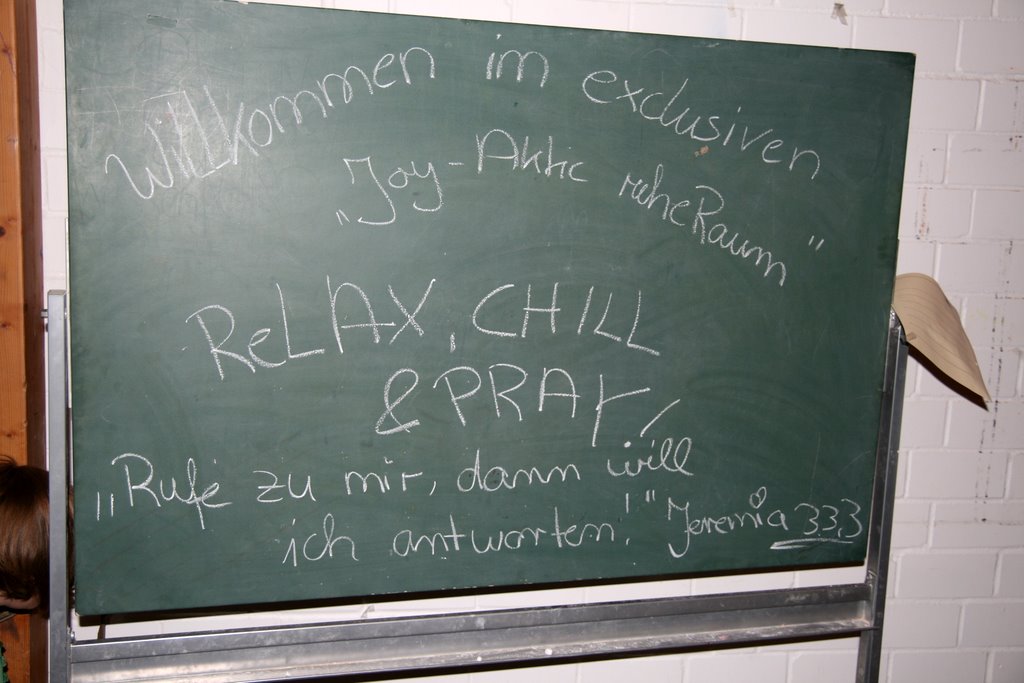 Willkommen im exclusiven
„Joy-Aktic ruheRaum"
ReLAX, CHILL
& PRAY!
„Rufe zu mir, dann will
ich antworten!" Jeremia 33,3